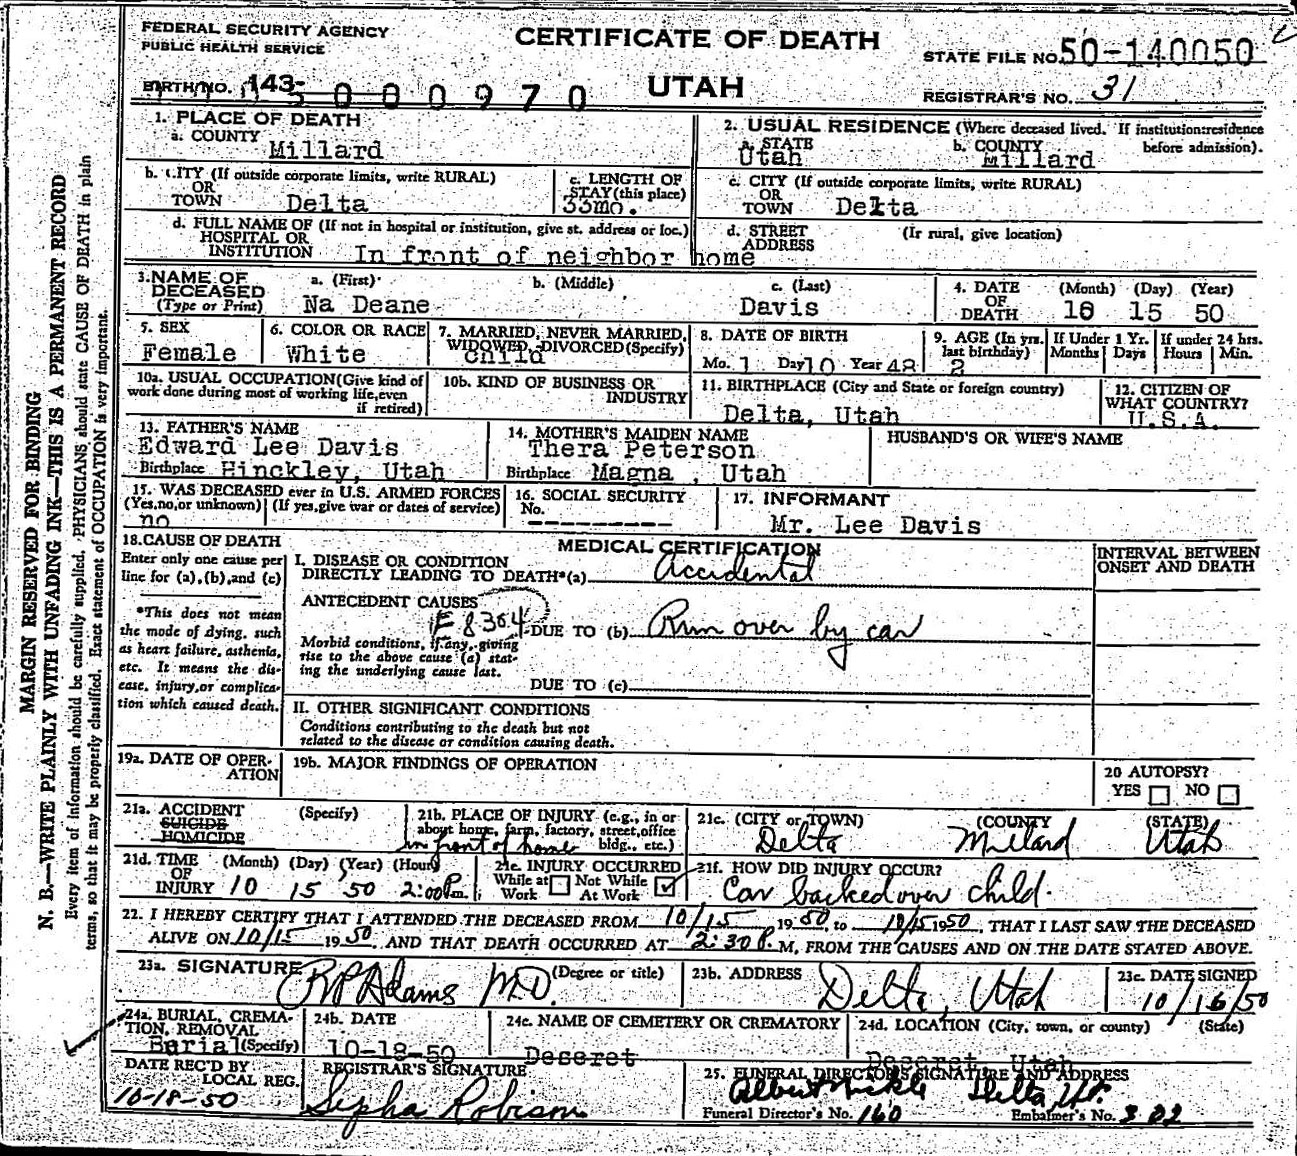 FEDERAL SECURITY AGENCY
PUBLIC HEALTH SERVICE
CERTIFICATE OF DEATH
STATE FILE NO. 50-140050
BIRTH NO. 143-
5 0 0 0 9 7 0
UTAH
REGISTRAR'S NO. 31
1. PLACE OF DEATH
a. COUNTY
Millard
2. USUAL RESIDENCE (Where deceased lived. If institution:residence before admission).
a. STATE
Utah
b. COUNTY
Millard
b. CITY (If outside corporate limits, write RURAL)
OR
TOWN Delta
c. LENGTH OF
STAY (this place)
33mo.
c. CITY (If outside corporate limits, write RURAL)
OR
TOWN Delta
d. FULL NAME OF (If not in hospital or institution, give st. address or loc.)
HOSPITAL OR
INSTITUTION In front of neighbor home
d. STREET (If rural, give location)
ADDRESS
3. NAME OF
DECEASED
(Type or Print)
a. (First) b. (Middle) c. (Last)
Na Deane Davis
4. DATE
OF
DEATH
(Month) (Day) (Year)
10 15 50
5. SEX
Female
6. COLOR OR RACE
White
7. MARRIED, NEVER MARRIED,
WIDOWED, DIVORCED (Specify)
Child
8. DATE OF BIRTH
Mo. 1 Day 10 Year 48
9. AGE (In yrs.
last birthday)
2
If Under 1 Yr.
Months Days
If under 24 hrs.
Hours Min.
10a. USUAL OCCUPATION (Give kind of
work done during most of working life, even
if retired)
10b. KIND OF BUSINESS OR
INDUSTRY
11. BIRTHPLACE (City and State or foreign country)
Delta, Utah
12. CITIZEN OF
WHAT COUNTRY?
U.S.A.
13. FATHER'S NAME
Edward Lee Davis
Birthplace Hinckley, Utah
14. MOTHER'S MAIDEN NAME
Thera Peterson
Birthplace Magna , Utah
HUSBAND'S OR WIFE'S NAME
15. WAS DECEASED ever in U.S. ARMED FORCES
(Yes, no, or unknown) (If yes, give war or dates of service)
no
16. SOCIAL SECURITY
No. ---------
17. INFORMANT
Mr. Lee Davis
18. CAUSE OF DEATH
Enter only one cause per
line for (a), (b), and (c)
*This does not mean
the mode of dying, such
as heart failure, asthenia,
etc. It means the dis-
ease, injury, or complica-
tion which caused death.
MEDICAL CERTIFICATION
INTERVAL BETWEEN
ONSET AND DEATH
I. DISEASE OR CONDITION
DIRECTLY LEADING TO DEATH*(a) Accidental
ANTECEDENT CAUSES
E 8304
DUE TO (b) Run over by car
Morbid conditions, if any, giving
rise to the above cause (a) stat-
ing the underlying cause last.
DUE TO (c)
II. OTHER SIGNIFICANT CONDITIONS
Conditions contributing to the death but not
related to the disease or condition causing death.
19a. DATE OF OPER-
ATION
19b. MAJOR FINDINGS OF OPERATION
20 AUTOPSY?
YES NO
21a. ACCIDENT (Specify)
SUICIDE
HOMICIDE
21b. PLACE OF INJURY (e.g., in or
about home, farm, factory, street, office
bldg., etc.)
in front of home
21c. (CITY or TOWN) (COUNTY (STATE)
Delta Millard Utah
21d. TIME (Month) (Day) (Year) (Hour)
OF
INJURY 10 15 50 2:00 P.m.
21e. INJURY OCCURRED
While at Not While ✓
Work At Work
21f. HOW DID INJURY OCCUR?
Car backed over child.
22. I HEREBY CERTIFY THAT I ATTENDED THE DECEASED FROM 10/15 1950, to 10/15 1950, THAT I LAST SAW THE DECEASED
ALIVE ON 10/15 1950, AND THAT DEATH OCCURRED AT 2:30 P. M, FROM THE CAUSES AND ON THE DATE STATED ABOVE.
23a. SIGNATURE (Degree or title)
Adams M.D.
23b. ADDRESS
Delta, Utah
23c. DATE SIGNED
10/16/50
24a. BURIAL, CREMA-
TION, REMOVAL
Burial (Specify)
24b. DATE
10-18-50
24c. NAME OF CEMETERY OR CREMATORY
Deseret
24d. LOCATION (City, town, or county) (State)
Deseret Utah
DATE REC'D BY
LOCAL REG.
10-18-50
REGISTRAR'S SIGNATURE
Robison
25. FUNERAL DIRECTOR'S SIGNATURE AND ADDRESS
Albert Delta, Ut.
Funeral Director's No. 160 Embalmer's No. 302
MARGIN RESERVED FOR BINDING
N. B.—WRITE PLAINLY WITH UNFADING INK—THIS IS A PERMANENT RECORD
Every item of information should be carefully supplied. PHYSICIANS should state CAUSE OF DEATH in plain
terms, so that it may be properly classified. Exact statement of OCCUPATION is very important.